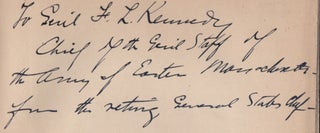 To Genl F. L. Kennedy
Chief of the Genl Staff of
the Army of Eastern Massachusetts
from the retiring General Stabs Chef-